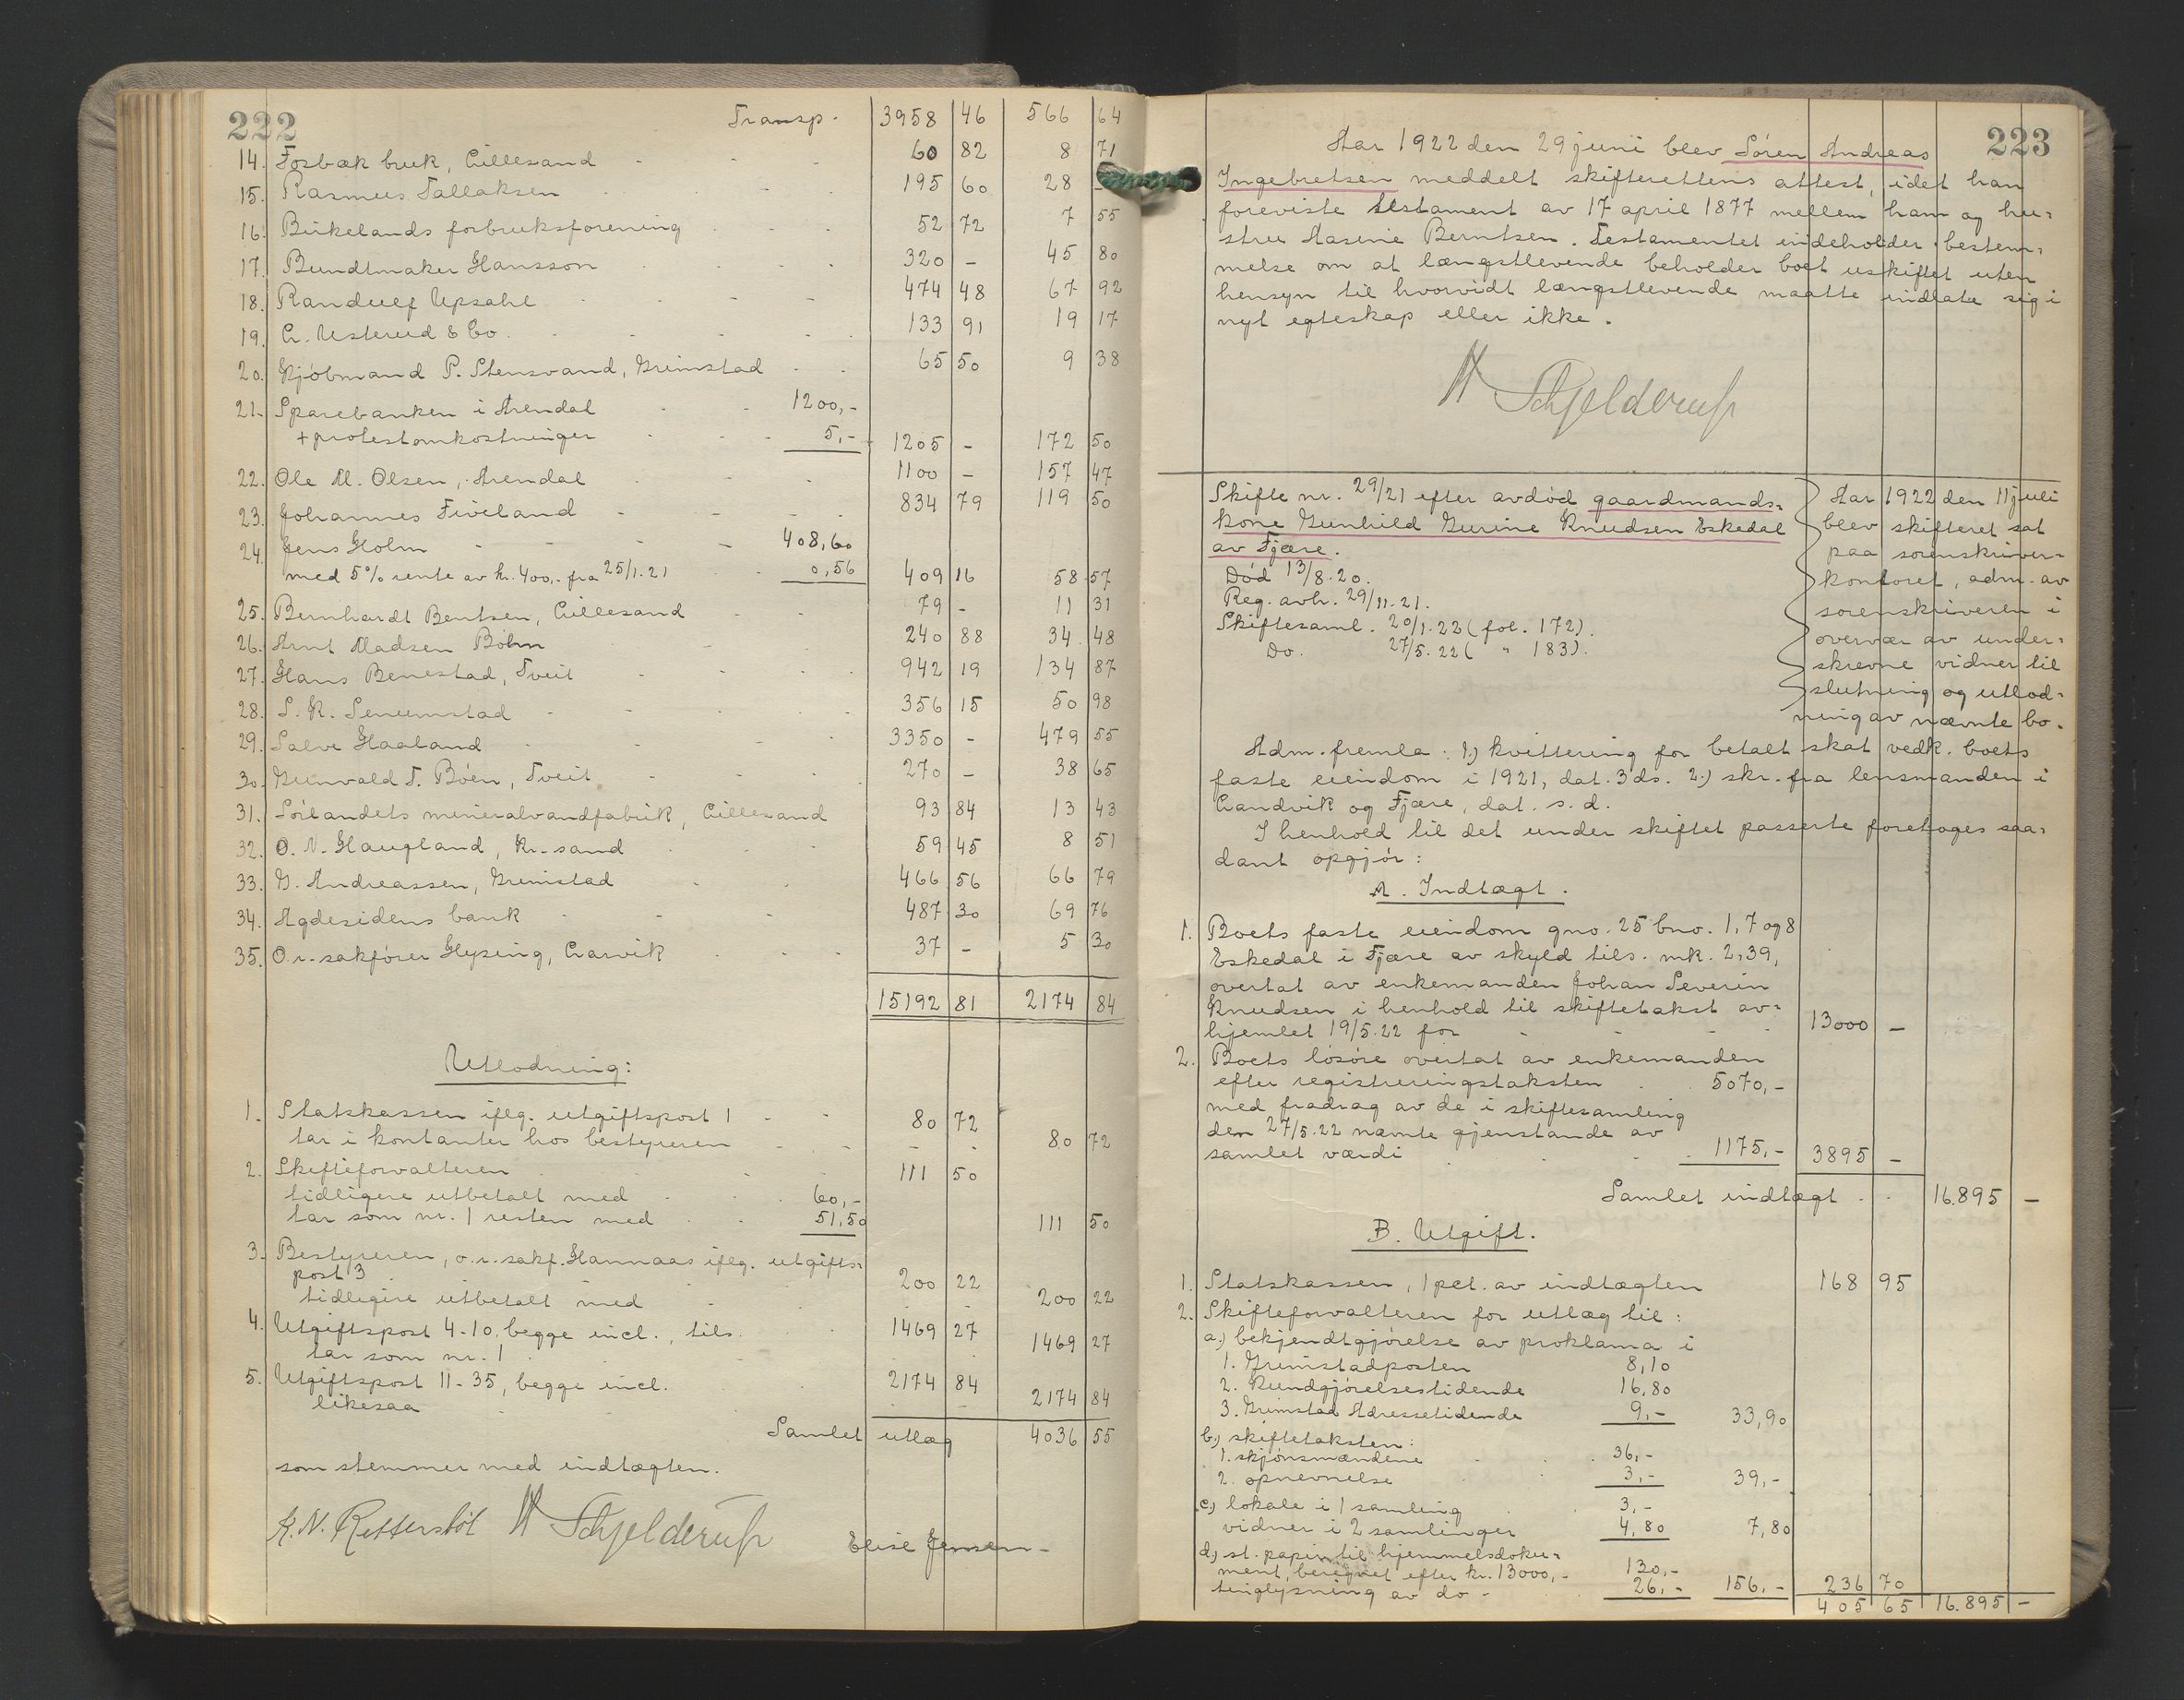 222
Transp. 3958 46 566 64
14. Fosbæk bruk, Lillesand 60 82 8 71
15. Rasmus Tallaksen 195 60 28
16. Birkelands forbruksforening 52 72 7 55
17. Bundtmaker Hansson 320 - 45 80
18. Randulf Upsahl 474 48 67 92
19. L. Usterud & Co. 133 91 19 17
20. Kjöbmand P. Stensvand, Grimstad 65 50 9 38
21. Sparebanken i Arendal 1200,-
+ protestomkostninger 5,- 1205 - 172 50
22. Ole M. Olsen, Arendal 1100 - 157 47
23. Johannes Fiveland 834 79 119 50
24. Jens Holm 408,60
med 5% rente av kr. 400,- fra 25/1.21 0,56 409 16 58 57
25. Bernhardt Bentsen, Lillesand 79 - 11 31
26. Arnt Madsen Böhn 240 88 34 48
27. Hans Benestad, Tveit 942 19 134 87
28. S. K. Senumstad 356 15 50 98
29. Salve Haaland 3350 - 479 55
30. Gunvald T. Böen, Tveit 270 - 38 65
31. Sörlandets mineralvandfabrik, Lillesand 93 84 13 43
32. O. N. Haugland, Kr.sand 59 45 8 51
33. G. Andreassen, Grimstad 466 56 66 79
34. Agdesidens bank 487 30 69 76
35. O.r.sakförer Hysing, Larvik 37 - 5 30
15192 81 2174 84
Utlodning:
1. Statskassen iflg. utgiftspost 1 80 72
tar i kontanter hos bestyreren 80 72
2. Skifteforvalteren 111 50
tidligere utbetalt med 60,-
tar som nr. 1 resten med 51,50 111 50
3. Bestyreren, o.r.sakf. Hannaas iflg. utgifts-
post 3 200 22
tidligere utbetalt med 200 22
4. Utgiftspost 4-10, begge incl., tils. 1469 27
tar som nr. 1 1469 27
5. Utgiftspost 11-35, begge incl. 2174 84
likesaa 2174 84
Samlet utlæg 4036 55
som stemmer med indtægten.
K. N. Rettersböl Schjelderup Elise Jensen
223
Aar 1922 den 29 juni blev Sören Andreas
Ingebretsen meddelt skifterettens attest, idet han
foreviste testament av 17 april 1877 mellem ham og hu-
stru Aasine Berntsen. Testamentet indeholder bestem-
melse om at længstlevende beholder boet uskiftet uten
hensyn til hvorvidt længstlevende maatte indlate sig i
nyt egteskap eller ikke.
Schjelderup
Skifte nr. 29/21 efter avdöd gaardmands-
kone Gunhild Gurine Knudsen Eskedal
av Fjære.
Död 13/8.20.
Reg. avh. 29/11.21.
Skiftesaml. 20/1.22 (fol. 172).
Do. 27/5.22 ( " 183).
Aar 1922 den 11 juli
blev skifteret sat
paa sorenskriver-
kontoret, adm. av
sorenskriveren i
overvær av under-
skrevne vidner til
slutning og utlod-
ning av nævnte bo.
Adm. fremla: 1.) kvittering for betalt skat vedk. boets
faste eiendom i 1921, dat. 3 ds. 2.) skr. fra lensmanden i
Landvik og Fjære, dat. s. d.
I henhold til det under skiftet passerte foretoges saa-
dant opgjör:
A. Indtægt.
1. Boets faste eiendom gno. 25 bno. 1, 7 og 8
Eskedal i Fjære av skyld tils. mk. 2,39,
overtat av enkemanden Johan Severin
Knudsen i henhold til skiftetakst av-
hjemlet 19/5.22 for 13000 -
2. Boets lösöre overtat av enkemanden
efter registreringstaksten 5070,-
med fradrag av de i skiftesamling
den 27/5.22 nævnte gjenstande av
samlet værdi 1175,- 3895 -
Samlet indtægt 16.895 -
B. Utgift.
1. Statskassen, 1 pct. av indtægten 168 95
2. Skifteforvalteren for utlæg til:
a.) bekjendtgjörelse av proklama i
1. Grimstadposten 8,10
2. Kundgjörelsestidende 16,80
3. Grimstad Adressetidende 9,- 33,90
b.) skiftetaksten:
1. skjönsmændene 36,-
2. opnevnelse 3,- 39,-
c.) lokale i 1 samling 3,-
vidner i 2 samlinger 4,80 7,80
d.) st. papir til hjemmelsdoku-
ment, beregnet efter kr. 13000,- 130,-
tinglysning av do - 26,- 156,- 236 70
405 65 16.895 -